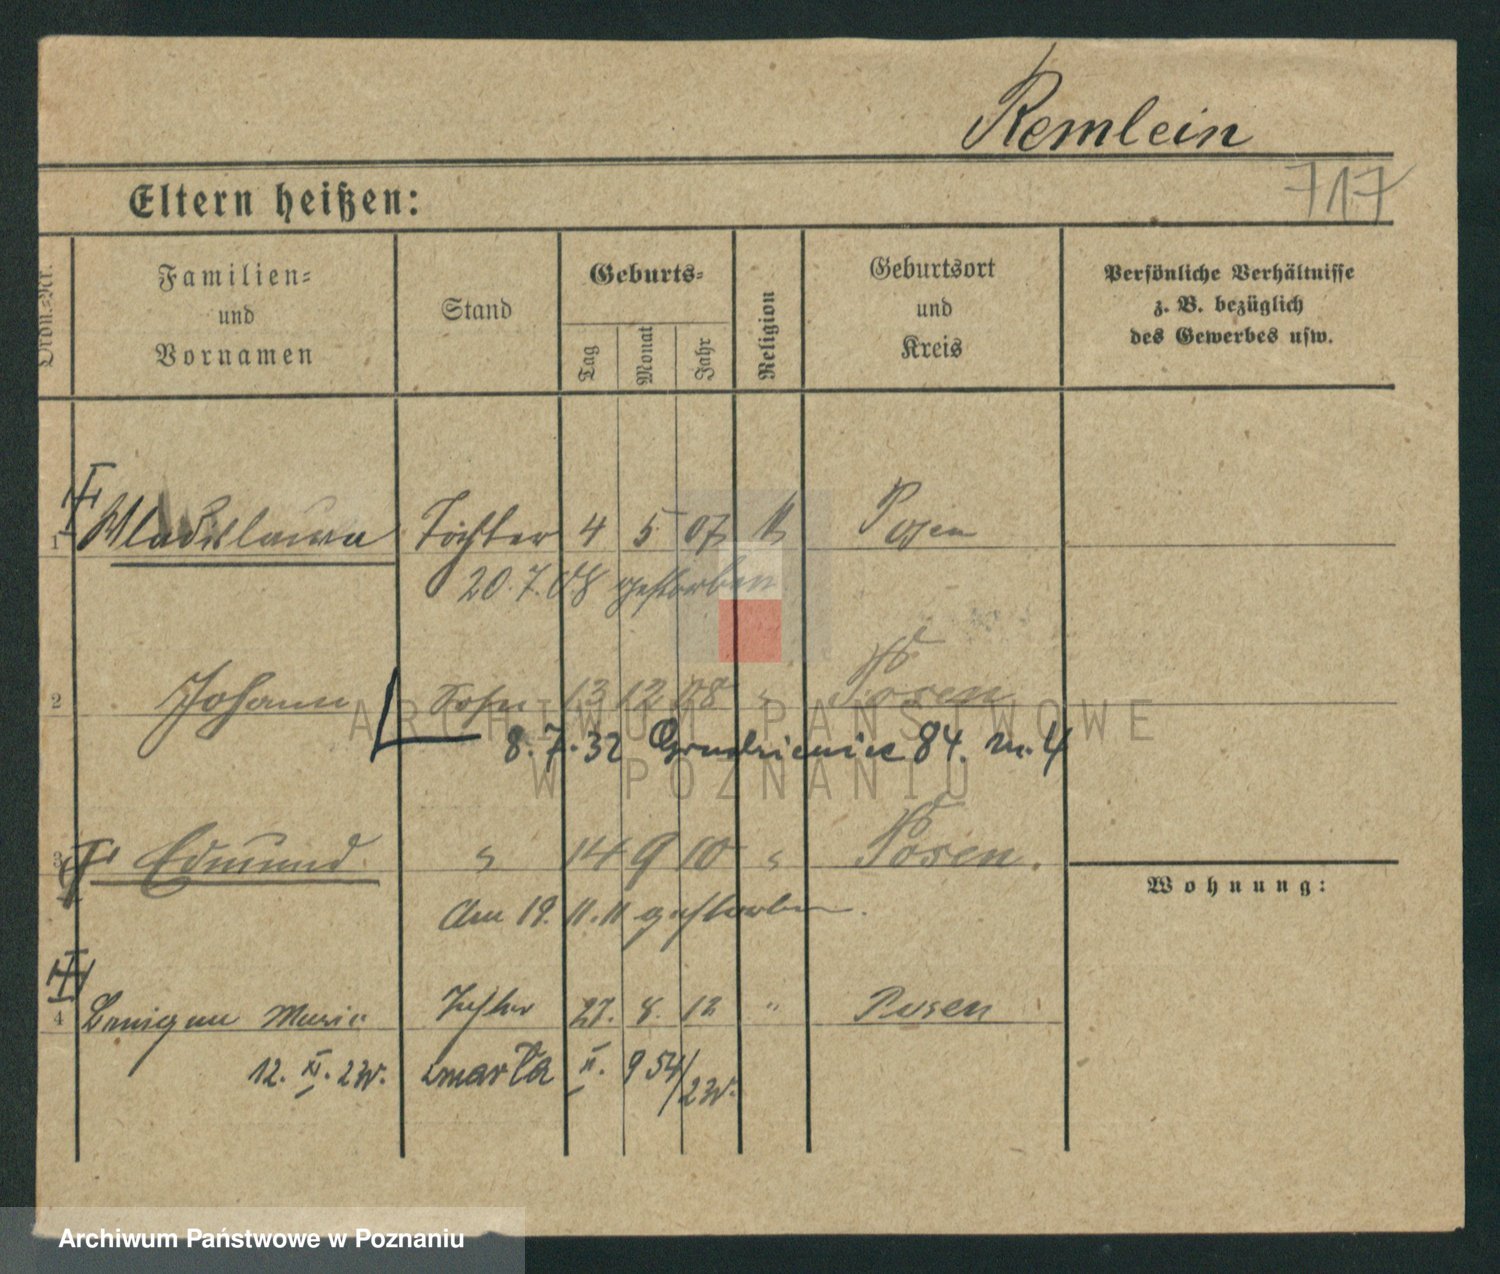 Remlein
717
Eltern heißen:
Ordn.-Nr.
Familien-
und
Vornamen
Stand
Geburts-
Tag
Monat
Jahr
Religion
Geburtsort
und
Kreis
Persönliche Verhältnisse
z. B. bezüglich
des Gewerbes usw.
1 Wladislawa Tochter 4 5 07 K Posen
20.7.08 gestorben
2 Johann Sohn 13 12 08 " Posen
8.7.32 84. m. 4
3 Edmund " 14 9 10 " Posen.
Am 19. 11. 11 gestorben.
Wohnung:
4 Marie Tochter 27. 8. 12 " Posen
12. XI. 23r. zmarła II. 954/23r.
ARCHIWUM PAŃSTWOWE
W POZNANIU
Archiwum Państwowe w Poznaniu